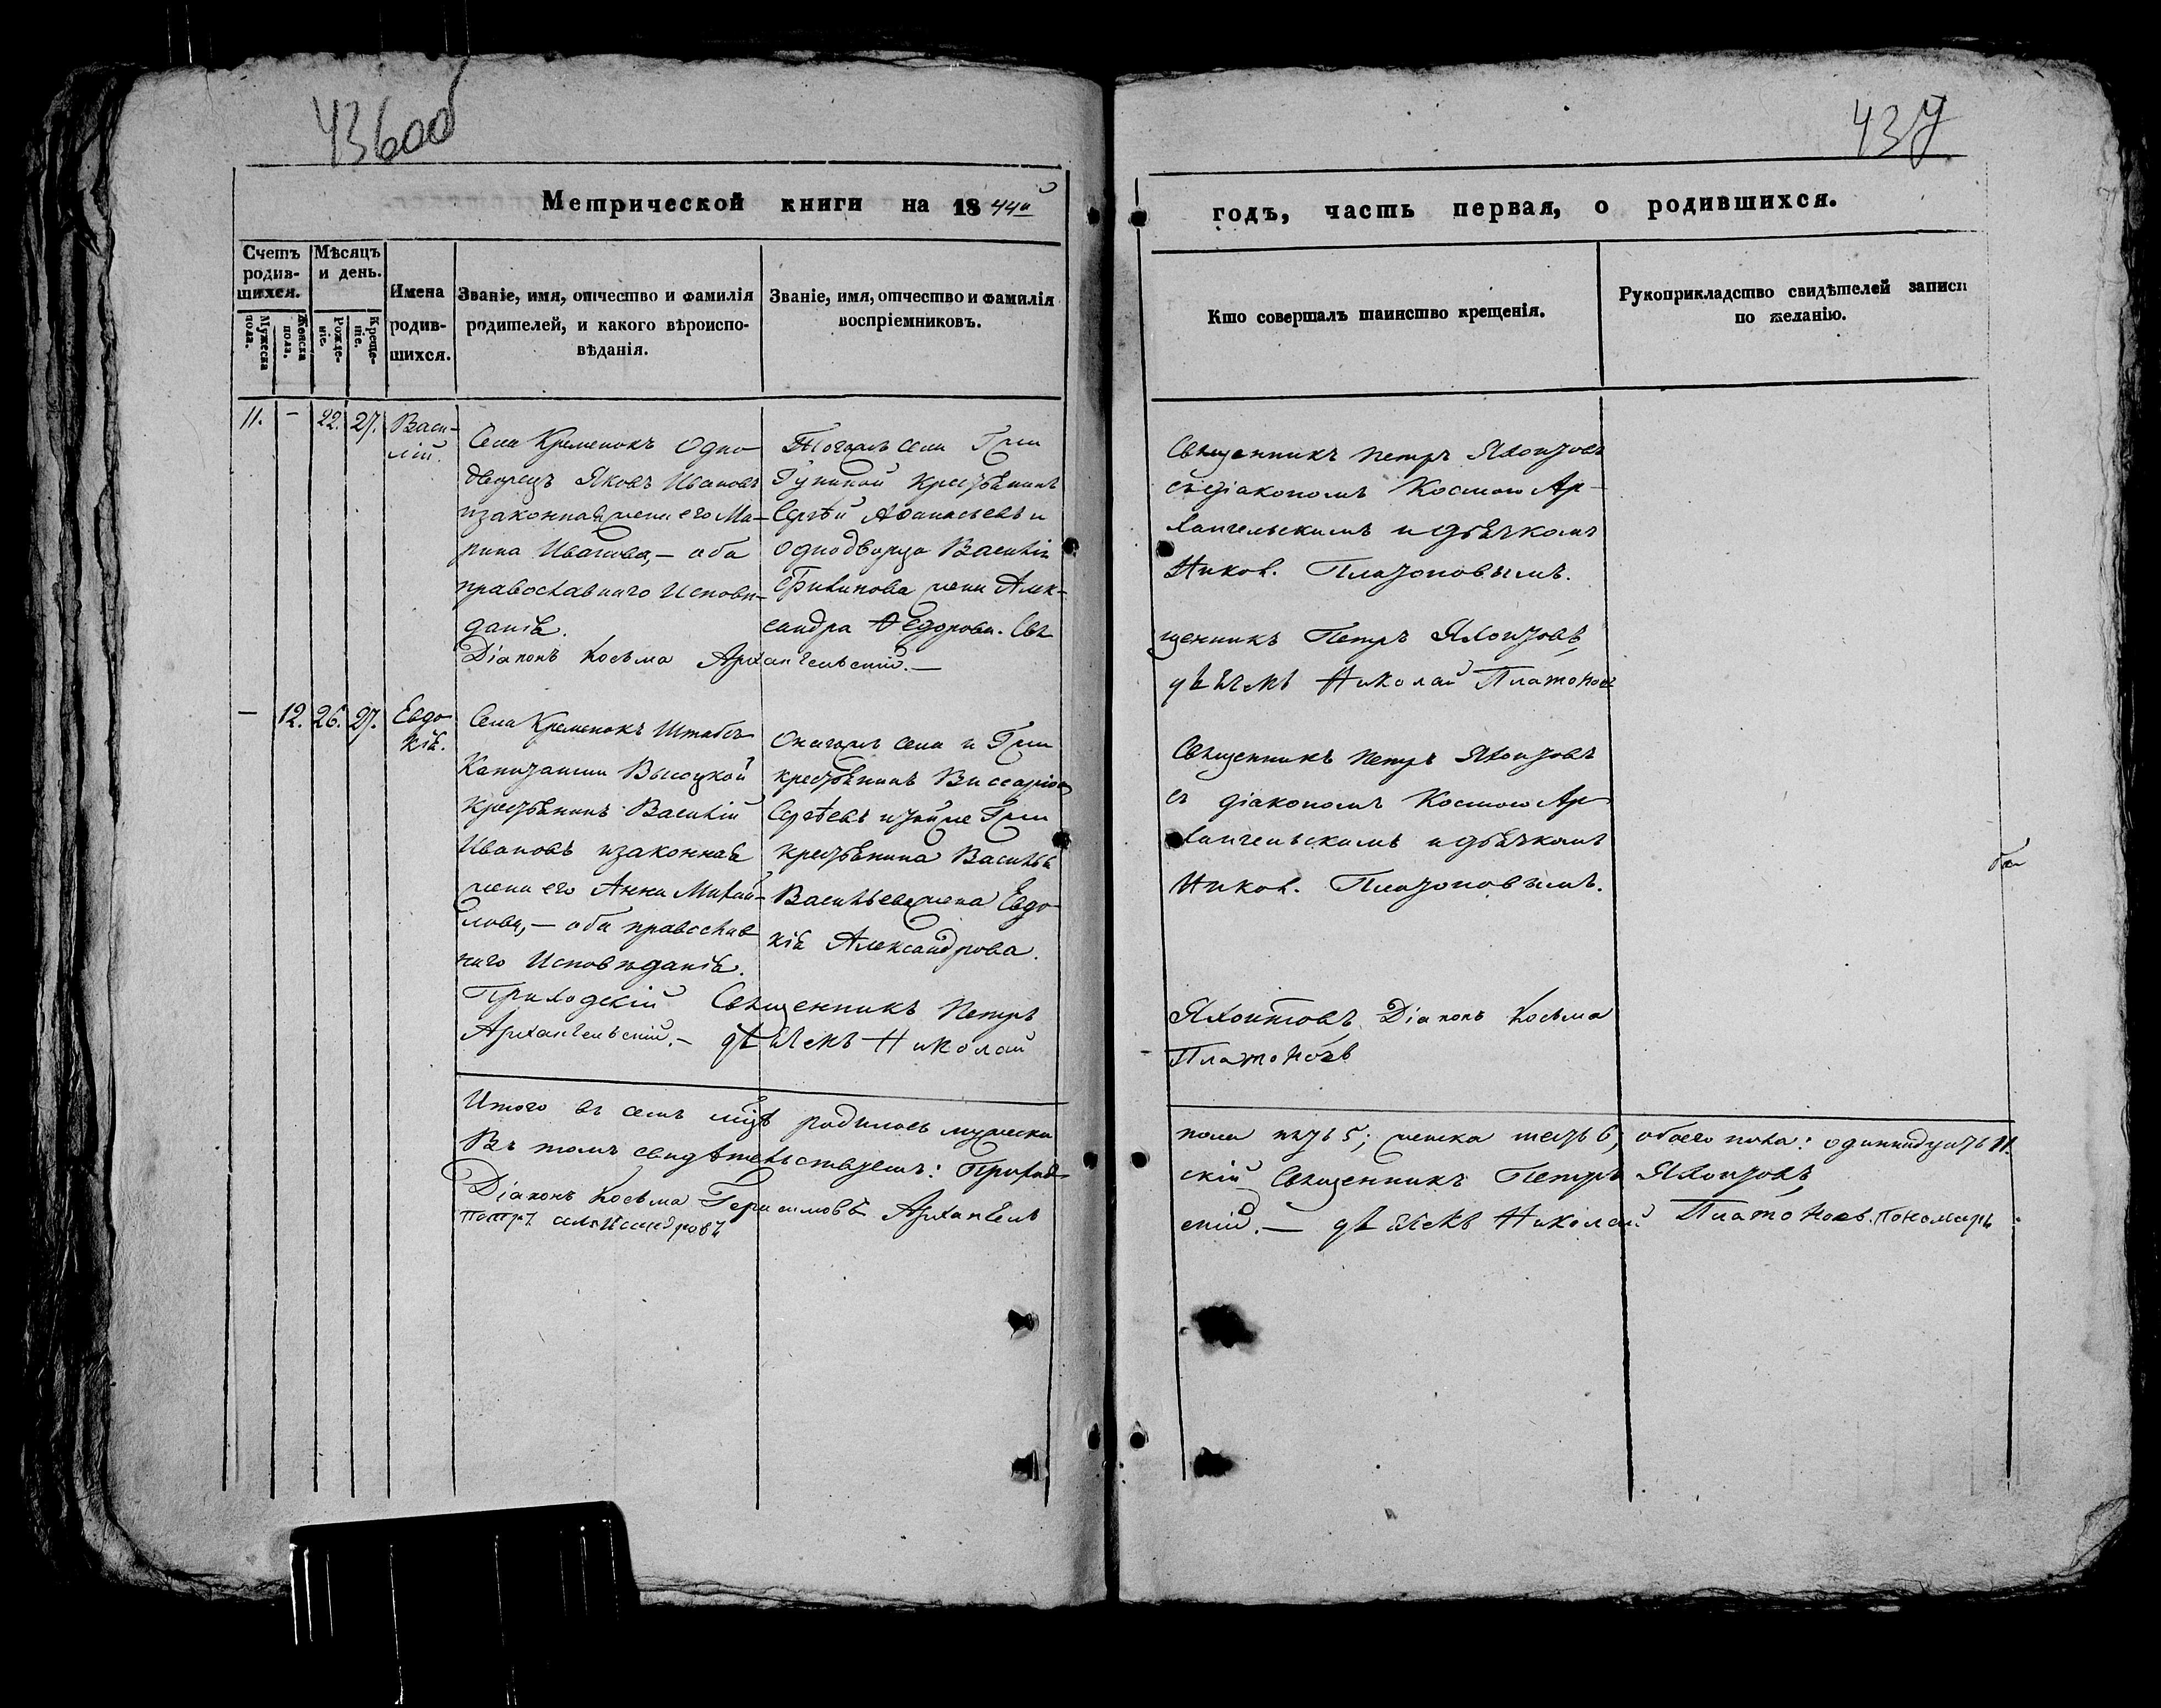 436 об
437
Метрической книги на 1844й
годъ, часть первая, о родившихся.
Счетъ родив-шихся.
Мужеска пола.
Женска пола.
Мѣсяцъ и день.
Рожде-ніе.
Креще-ніе.
Имена родив-шихся.
Званіе, имя, отчество и фамилія
родителей, и какого вѣроиспо-
вѣданія.
Званіе, имя, отчество и фамилія
воспріемниковъ.
Кто совершалъ таинство крещенія.
Рукоприкладство свидѣтелей записи
по желанію.
11. - 22. 27. Васи-
лій.
Села Кременокъ Одно-
дворецъ Яковъ Ивановъ
и законная жена его Ма-
рина Иванова, - оба
православнаго Исповѣ-
данія.
Тогожъ села Гжи
крестьянинъ
Сергѣй Афанасьевъ и
однодворца Василія
жена Алек-
сандра Федорова. Свя
Священникъ Петръ Яхонтовъ
съ діакономъ Космою Ар-
хангельскимъ и дьячкомъ
Никол. Платоновымъ.
Діаконъ Косьма Архангельскій. -
щенникъ Петръ Яхонтовъ,
дьячекъ Николай Платоновъ
- 12. 26. 27. Евдо-
кія.
Села Кременокъ Штабсъ
Капитанши Высоцкой
крестьянинъ Василій
Ивановъ и законная
жена его Анна Михай-
лова, - оба православ
наго Исповѣданія.
Онагожъ села и Гжи
крестьянинъ Виссаріонъ
Сергѣевъ и тойже Гжи
крестьянина Василья
Васильева жена Евдо-
кія Александрова.
Священникъ Петръ Яхонтовъ
съ діакономъ Космою Ар-
хангельскимъ и дьячкомъ
Никол. Платоновымъ.
Приходскій Священникъ Петръ
Яхонтовъ, Діаконъ Косьма
Архангельскій. - дьячекъ Николай
Платоновъ
Итого въ семъ мцѣ родилось мужеска
пола пять 5; женска шесть 6, обоего пола: одиннадцать 11.
Въ томъ свидѣтельствуетъ: Приход-
скій Священникъ Петръ Яхонтовъ
Діаконъ Косьма Герасимовъ Архангель
скій. - дьячекъ Николай Платоновъ. Пономарь
Петръ Александровъ